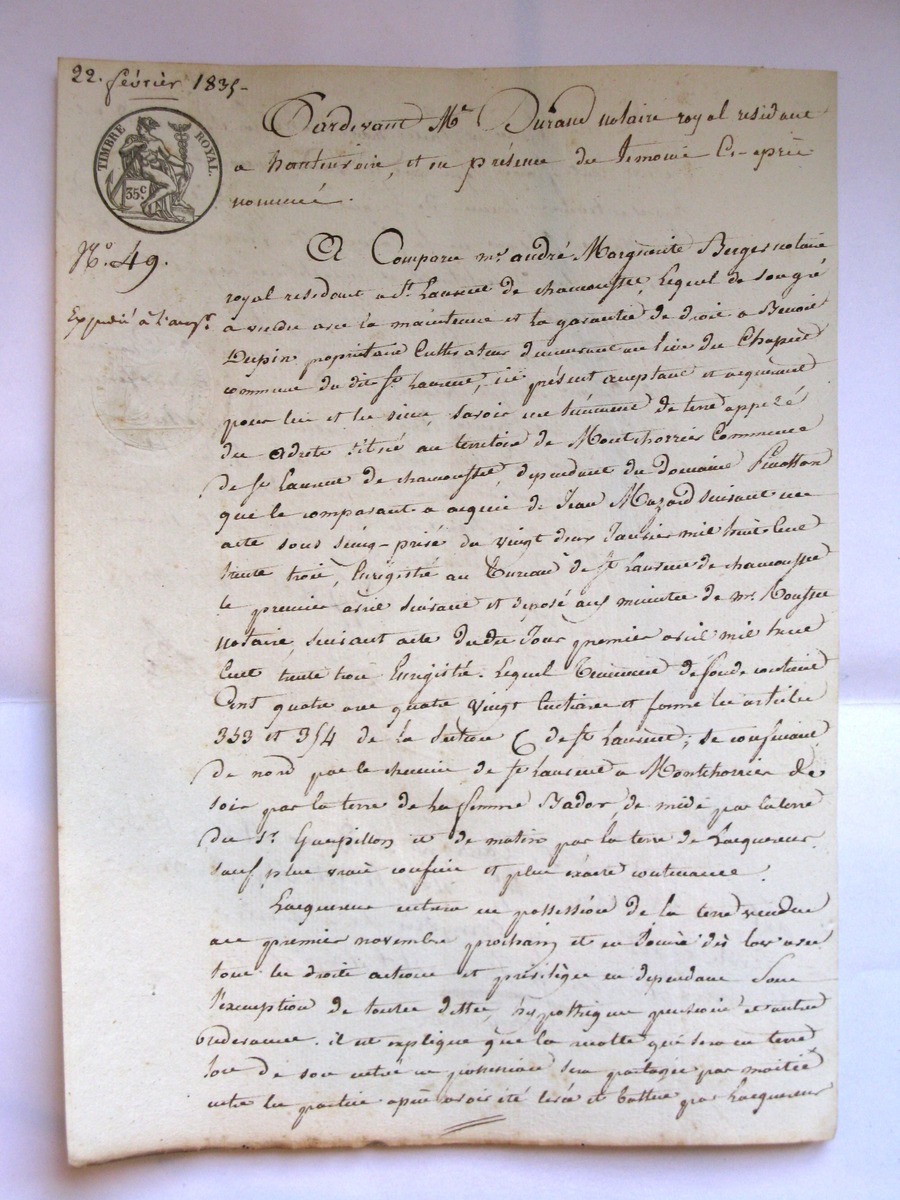 22. février 1835-
TIMBRE ROYAL.
35c
Pardevant Me Durand notaire royal residant
a hauterivoire, et en présence des temoins Ci-après
nommés.
No. 49.
A Comparu mr andré Marguerite Berger notaire
royal residant a St. Laurent de chamousset, Lequel de son gré
Expedié à l'acqr.
a vendu avec la maintenue et la garantie de droit a Benoit
Dupin propriétaire Cultivateur demeurant au lieu du
commune du dit St. Laurent, ici présent acceptant et acquereur
pour lui et les siens, savoir un tènement de terre appelé
du situé au territoire de Montchorrier Commune
de St Laurent de chamousset, dependant du domaine
que le comparant a acquis de Jean Mazard suivant un
acte sous seing-privé du vingt deux Janvier mil huit cent
trente trois, Enregistré au Bureau de St Laurent de chamousset
le premier avril suivant et déposé aux minutes de mr. Rousset
notaire, suivant acte du dit Jour premier avril mil huit
Cent trente trois Enregistré. Lequel Tènement de fonds contient
Cent quatre ares quatre vingt Centiares et forme les articles
353 et 354 de la section C de St Laurent; se confinant
de nord par le chemin de St Laurent a Montchorrier de
soir par la terre de la femme Bador, de midi par la terre
du Sr. Guepillon et de matin par la terre de Lacquereur
sauf plus vrais confins et plus éxacte contenance.
Lacquereur entrera en possession de la terre vendue
au premier novembre prochain et en Jouira dès lors avec
tous les droits actions et privilèges en dependant Sous
l'exception de toutes dettes, hypothèques pensions et autres
redevances. il est expliqué que la recolte qui sera en terre
lors de son entrée en possession sera partagée par moitié
entre les parties après avoir été levée et battue par Lacquereur